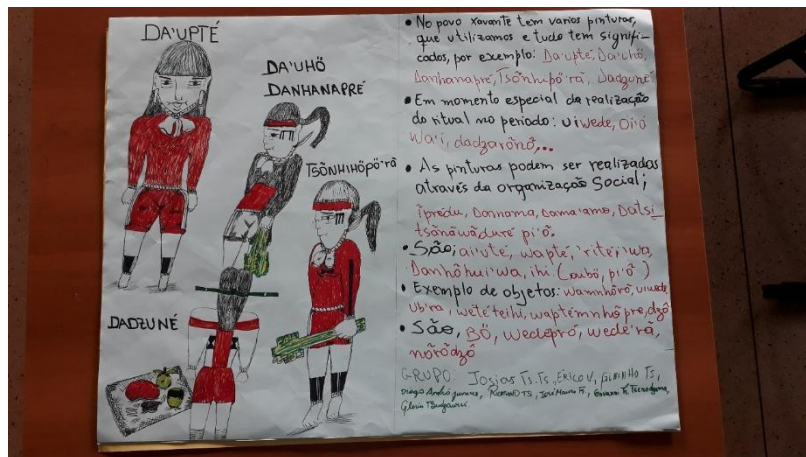 DA'UPTÉ
DA'UHÖ
DANHANAPRÉ
TSÕNHIHÖPÖ'RÃ
DADZUNÉ
• No povo xavante tem varios pinturas,
que utilizamos e tudo tem signifi-
cados, por exemplo: Da'upté, Da'uhö,
Danhanapré, Tsõnhipö'rã, Dadzuné
• Em momento especial da realização
do ritual no período: uiwede, Oi'ó
Wa'i, dadzarõnõ,...
• As pinturas podem ser realizados
através da organização Social;
ĩpredu, Dannama, Dama'amo, Datsi-
tsãnãwãdure pi'õ.
• São; ai'uté, wapté, 'ritéi'wa,
Danhõhui'wa, ihi (aubö, pi'õ)
• Exemplo de objetos: wamnhõrõ, uiwede
ub'ra, wetéteihi, waptémnhõ pre, dzö
• São, BÖ, wedepró, wede'rã,
nõrõdzö
GRUPO: Josias Ts.Ts, ERICO V, GININHO TS,
Diego André, TS, José Mario Ts,
Gloria